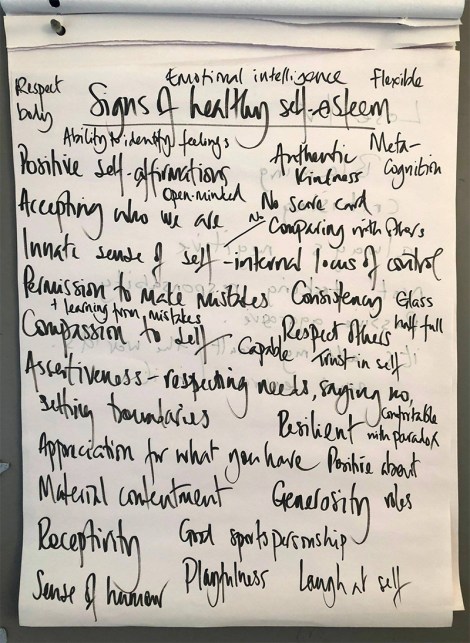 Emotional intelligence
Flexible
Respect
body
Signs of healthy self-esteem
Ability to identify feelings
Meta-
Cognition
Positive self-affirmations
Authentic
Kindness
Open-minded
Accepting who we are
No score card
No Comparing with Others
Innate sense of self - internal locus of control
Permission to make mistakes
Consistency
Glass
half full
+ learning from mistakes
Compassion to self
Capable
Respect Others
Trust in self
Assertiveness - respecting needs, saying no,
setting boundaries
Comfortable
with paradox
Resilient
Appreciation for what you have
Positive about
roles
Material contentment
Generosity
Receptivity
Good sportspersonship
Sense of humour
Playfulness
Laugh at self